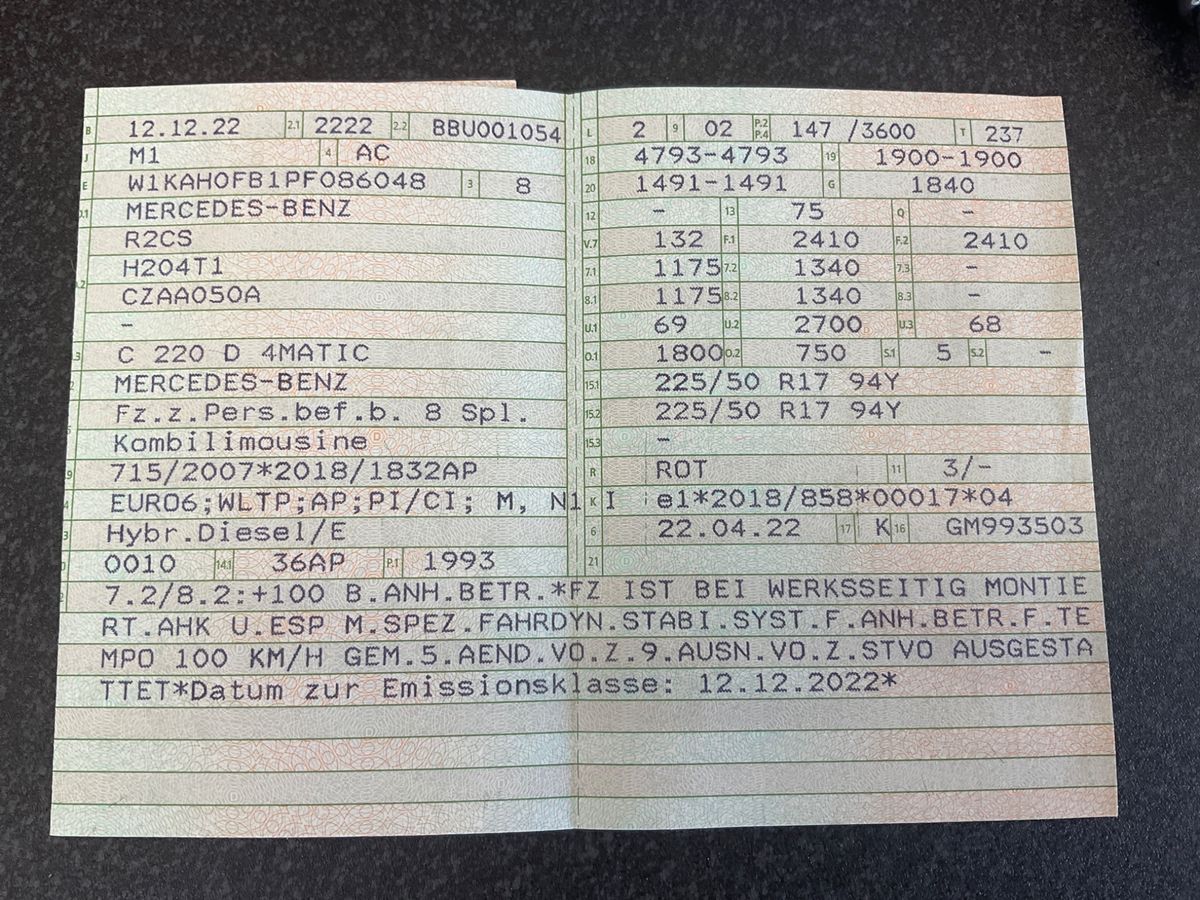 B 12.12.22 2.1 2222 2.2 BBU001054
J M1 4 AC
E W1KAH0FB1PF086048 3 8
MERCEDES-BENZ
R2CS
H204T1
CZAA050A
-
C 220 D 4MATIC
MERCEDES-BENZ
Fz.z.Pers.bef.b. 8 Spl.
Kombilimousine
715/2007*2018/1832AP
EURO6;WLTP;AP;PI/CI; M, N1 I
Hybr.Diesel/E
0010 14.1 36AP P.1 1993
L 2 9 02 P.2 P.4 147 /3600 T 237
18 4793-4793 19 1900-1900
20 1491-1491 G 1840
12 - 13 75 Q -
V.7 132 F.1 2410 F.2 2410
7.1 1175 7.2 1340 7.3 -
8.1 1175 8.2 1340 8.3 -
U.1 69 U.2 2700 U.3 68
O.1 1800 O.2 750 S.1 5 S.2 -
15.1 225/50 R17 94Y
15.2 225/50 R17 94Y
15.3 -
R ROT 11 3/-
K e1*2018/858*00017*04
6 22.04.22 17 K 16 GM993503
21
7.2/8.2:+100 B.ANH.BETR.*FZ IST BEI WERKSSEITIG MONTIE
RT.AHK U.ESP M.SPEZ.FAHRDYN.STABI.SYST.F.ANH.BETR.F.TE
MPO 100 KM/H GEM.5.AEND.VO.Z.9.AUSN.VO.Z.STVO AUSGESTA
TTET*Datum zur Emissionsklasse: 12.12.2022*